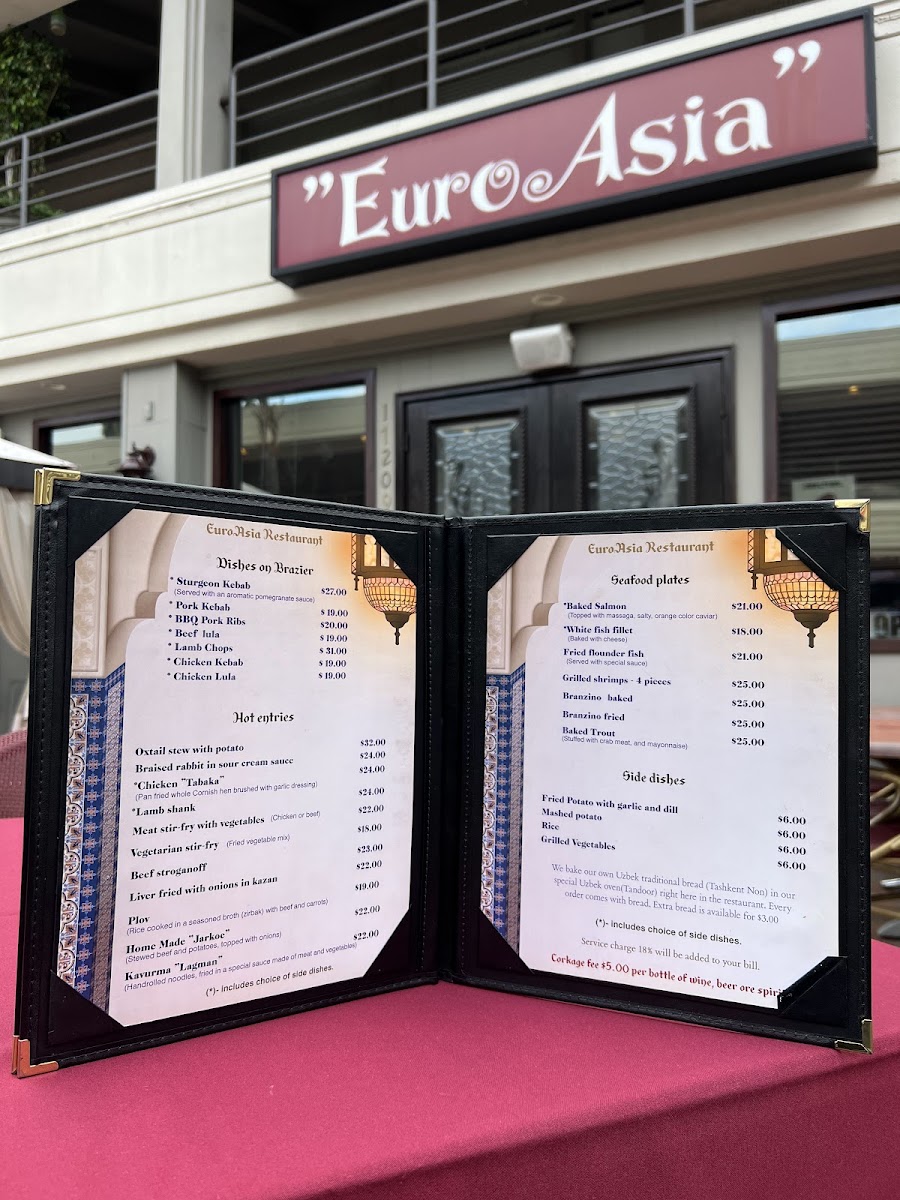 "EuroAsia"
EuroAsia Restaurant
Dishes on Brazier
* Sturgeon Kebab $27.00
(Served with an aromatic pomegranate sauce)
* Pork Kebab $ 19.00
* BBQ Pork Ribs $20.00
* Beef lula $ 19.00
* Lamb Chops $ 31.00
* Chicken Kebab $ 19.00
* Chicken Lula $ 19.00
Hot entries
Oxtail stew with potato $32.00
Braised rabbit in sour cream sauce $24.00
*Chicken "Tabaka" $24.00
(Pan fried whole Cornish hen brushed with garlic dressing)
*Lamb shank $24.00
Meat stir-fry with vegetables (Chicken or beef) $22.00
Vegetarian stir-fry (Fried vegetable mix) $18.00
Beef stroganoff $23.00
Liver fried with onions in kazan $22.00
Plov $19.00
(Rice cooked in a seasoned broth (zirbak) with beef and carrots)
Home Made "Jarkoe" $22.00
(Stewed beef and potatoes, topped with onions)
Kavurma "Lagman" $22.00
(Handrolled noodles, fried in a special sauce made of meat and vegetables)
(*)- includes choice of side dishes.
EuroAsia Restaurant
Seafood plates
*Baked Salmon $21.00
(Topped with massaga, salty, orange color caviar)
*White fish fillet $18.00
(Baked with cheese)
Fried flounder fish $21.00
(Served with special sauce)
Grilled shrimps - 4 pieces $25.00
Branzino baked $25.00
Branzino fried $25.00
Baked Trout $25.00
(Stuffed with crab meat, and mayonnaise)
Side dishes
Fried Potato with garlic and dill $6.00
Mashed potato $6.00
Rice $6.00
Grilled Vegetables $6.00
We bake our own Uzbek traditional bread (Tashkent Non) in our
special Uzbek oven(Tandoor) right here in the restaurant. Every
order comes with bread. Extra bread is available for $3.00
(*)- includes choice of side dishes.
Service charge 18% will be added to your bill.
Corkage fee $5.00 per bottle of wine, beer ore spiri